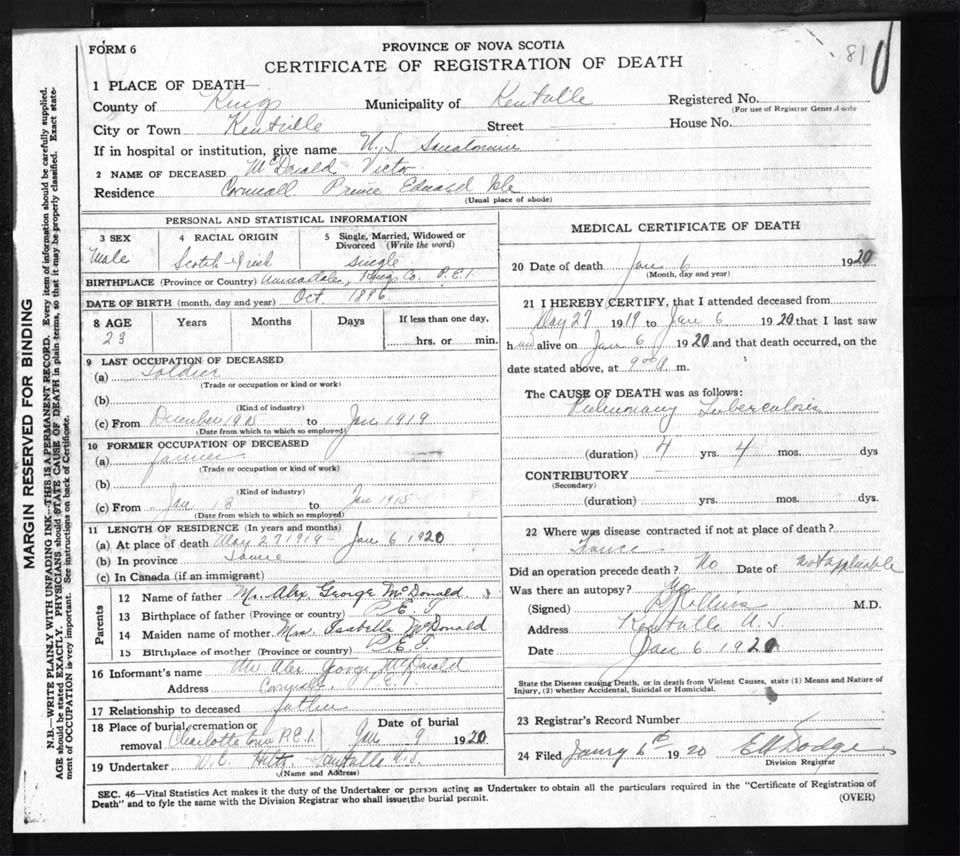 FORM 6
PROVINCE OF NOVA SCOTIA
CERTIFICATE OF REGISTRATION OF DEATH
810
1 PLACE OF DEATH—
County of Kings Municipality of Kentville Registered No.
(For use of Registrar General only
City or Town Kentville Street House No.
If in hospital or institution, give name N.S Sanatorium
2 NAME OF DECEASED McDonald Victor
Residence Cornwall Prince Edward Isle
(Usual place of abode)
PERSONAL AND STATISTICAL INFORMATION
3 SEX 4 RACIAL ORIGIN 5 Single, Married, Widowed or Divorced (Write the word)
Male Scotch-Irish single
BIRTHPLACE (Province or Country) Annandale, Kings Co. P.E.I.
DATE OF BIRTH (month, day and year) Oct. 1896
8 AGE Years Months Days If less than one day,
23 hrs. or min.
9 LAST OCCUPATION OF DECEASED
(a) Soldier
(Trade or occupation or kind or work)
(b)
(Kind of industry)
(c) From December 1915 to Jan 1919
(Date from which to which so employed)
10 FORMER OCCUPATION OF DECEASED
(a) farmer
(Trade or occupation or kind of work)
(b)
(Kind of industry)
(c) From Jan 13 to Jan 1915
(Date from which to which so employed)
11 LENGTH OF RESIDENCE (In years and months)
(a) At place of death May 27 1919 - Jan 6 1920
(b) In province Same
(c) In Canada (if an immigrant)
Parents
12 Name of father Mr. Alex. George McDonald
13 Birthplace of father (Province or country) P.E.I.
14 Maiden name of mother Mrs. Isabella McDonald
15 Birthplace of mother (Province or country) P.E.I.
16 Informant's name Mr Alex George McDonald
Address Cornwall, P.E.I.
17 Relationship to deceased father
18 Place of burial, cremation or removal Charlottetown P.E.I. Date of burial Jan 9 1920
19 Undertaker W.C. Kentville N.S
(Name and Address)
MEDICAL CERTIFICATE OF DEATH
20 Date of death Jan 6 1920
(Month, day and year)
21 I HEREBY CERTIFY, that I attended deceased from
May 27 1919 to Jan 6 1920 that I last saw
him alive on Jan 6 1920 and that death occurred, on the
date stated above, at 9 m.
The CAUSE OF DEATH was as follows:
Pulmonary Tuberculosis
(duration) 4 yrs. 4 mos. dys
CONTRIBUTORY
(Secondary)
(duration) yrs. mos. dys.
22 Where was disease contracted if not at place of death?
France
Did an operation precede death? No Date of not applicable
Was there an autopsy? No
(Signed) Collins M.D.
Address Kentville N.S.
Date Jan 6 1920
State the Disease causing Death, or in death from Violent Causes, state (1) Means and Nature of
Injury, (2) whether Accidental, Suicidal or Homicidal.
23 Registrar's Record Number
24 Filed Janry 6th 1920 Dodge
Division Registrar
SEC. 46—Vital Statistics Act makes it the duty of the Undertaker or person acting as Undertaker to obtain all the particulars required in the "Certificate of Registration of
Death" and to fyle the same with the Division Registrar who shall issue the burial permit. (OVER)
MARGIN RESERVED FOR BINDING
N.B.—WRITE PLAINLY WITH UNFADING INK—THIS IS A PERMANENT RECORD. Every item of information should be carefully supplied.
AGE should be stated EXACTLY. PHYSICIANS should STATE CAUSE OF DEATH in plain terms, so that it may be properly classified. Exact state-
ment of OCCUPATION is very important. See instructions on back of Certificate.